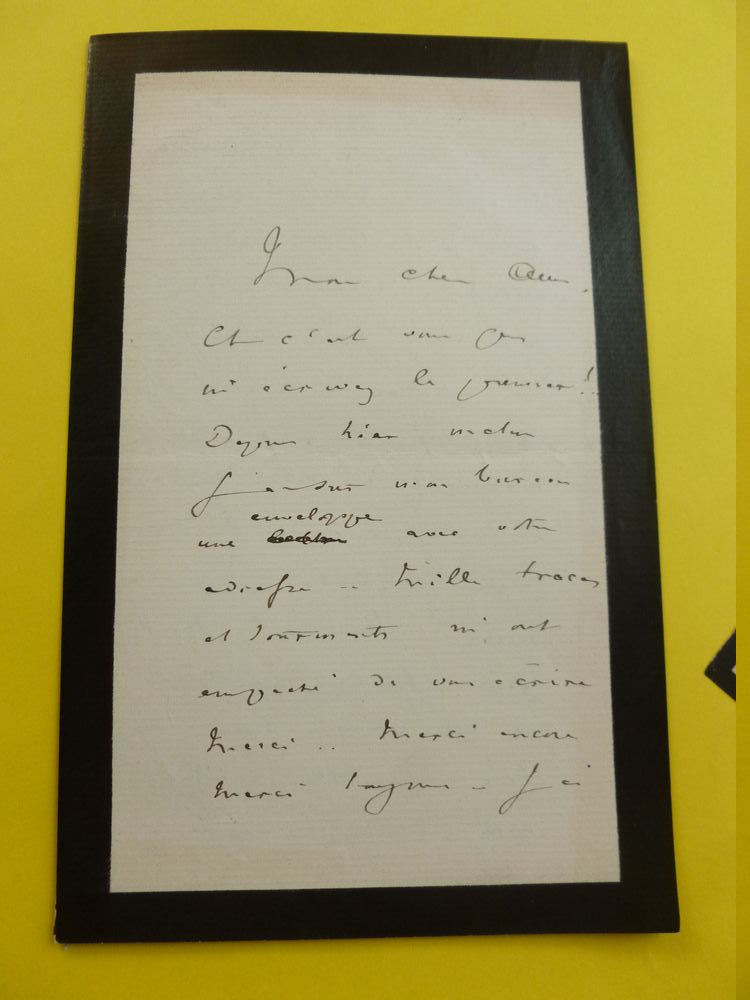 Mon cher
Et c'est vous qui
m'écrivez le premier!
Depuis hier matin
j'ai sur mon bureau
enveloppe
une avec votre
adresse -- Mille tracas
et tourments m'ont
empeché de vous écrire
Merci .. Merci encore
Merci toujours - J'ai